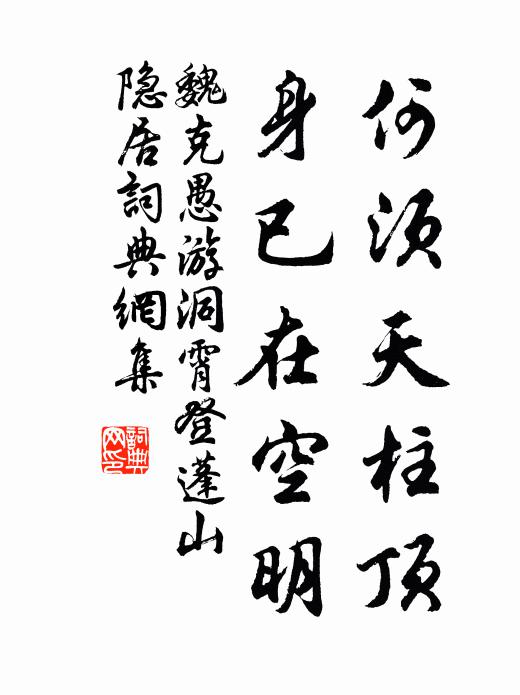 何须天柱顶
身已在空明
魏克愚游洞霄登蓬山
隐居詞典網集
詞典
网印